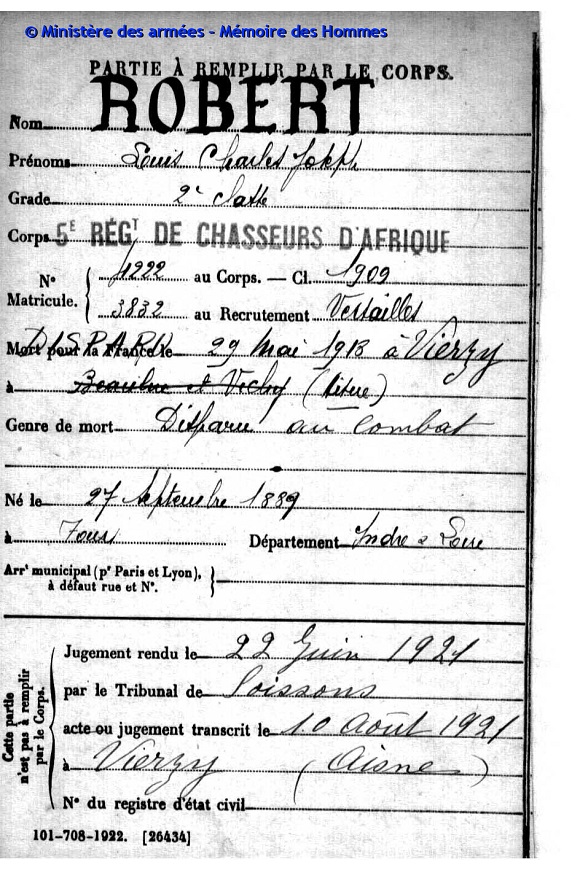 © Ministère des armées - Mémoire des Hommes
PARTIE À REMPLIR PAR LE CORPS.
Nom ROBERT
Prénoms Louis Charles Joseph
Grade 2e classe
Corps 5E RÉGT DE CHASSEURS D'AFRIQUE
N° Matricule. { 4222 au Corps. — Cl. 1909
3832 au Recrutement Versailles
DISPARU
Mort pour la France le 29 Mai 1918 à Vierzy
à Beaulne et Vichy (Aisne)
Genre de mort Disparu au combat
Né le 27 Septembre 1889
à Tours Département Indre & Loire
Arrt municipal (pr Paris et Lyon), à défaut rue et N°. }
Cette partie n'est pas à remplir par le Corps. {
Jugement rendu le 22 Juin 1921
par le Tribunal de Soissons
acte ou jugement transcrit le 10 Août 1921
à Vierzy (Aisne)
N° du registre d'état civil
101-708-1922. [26434]